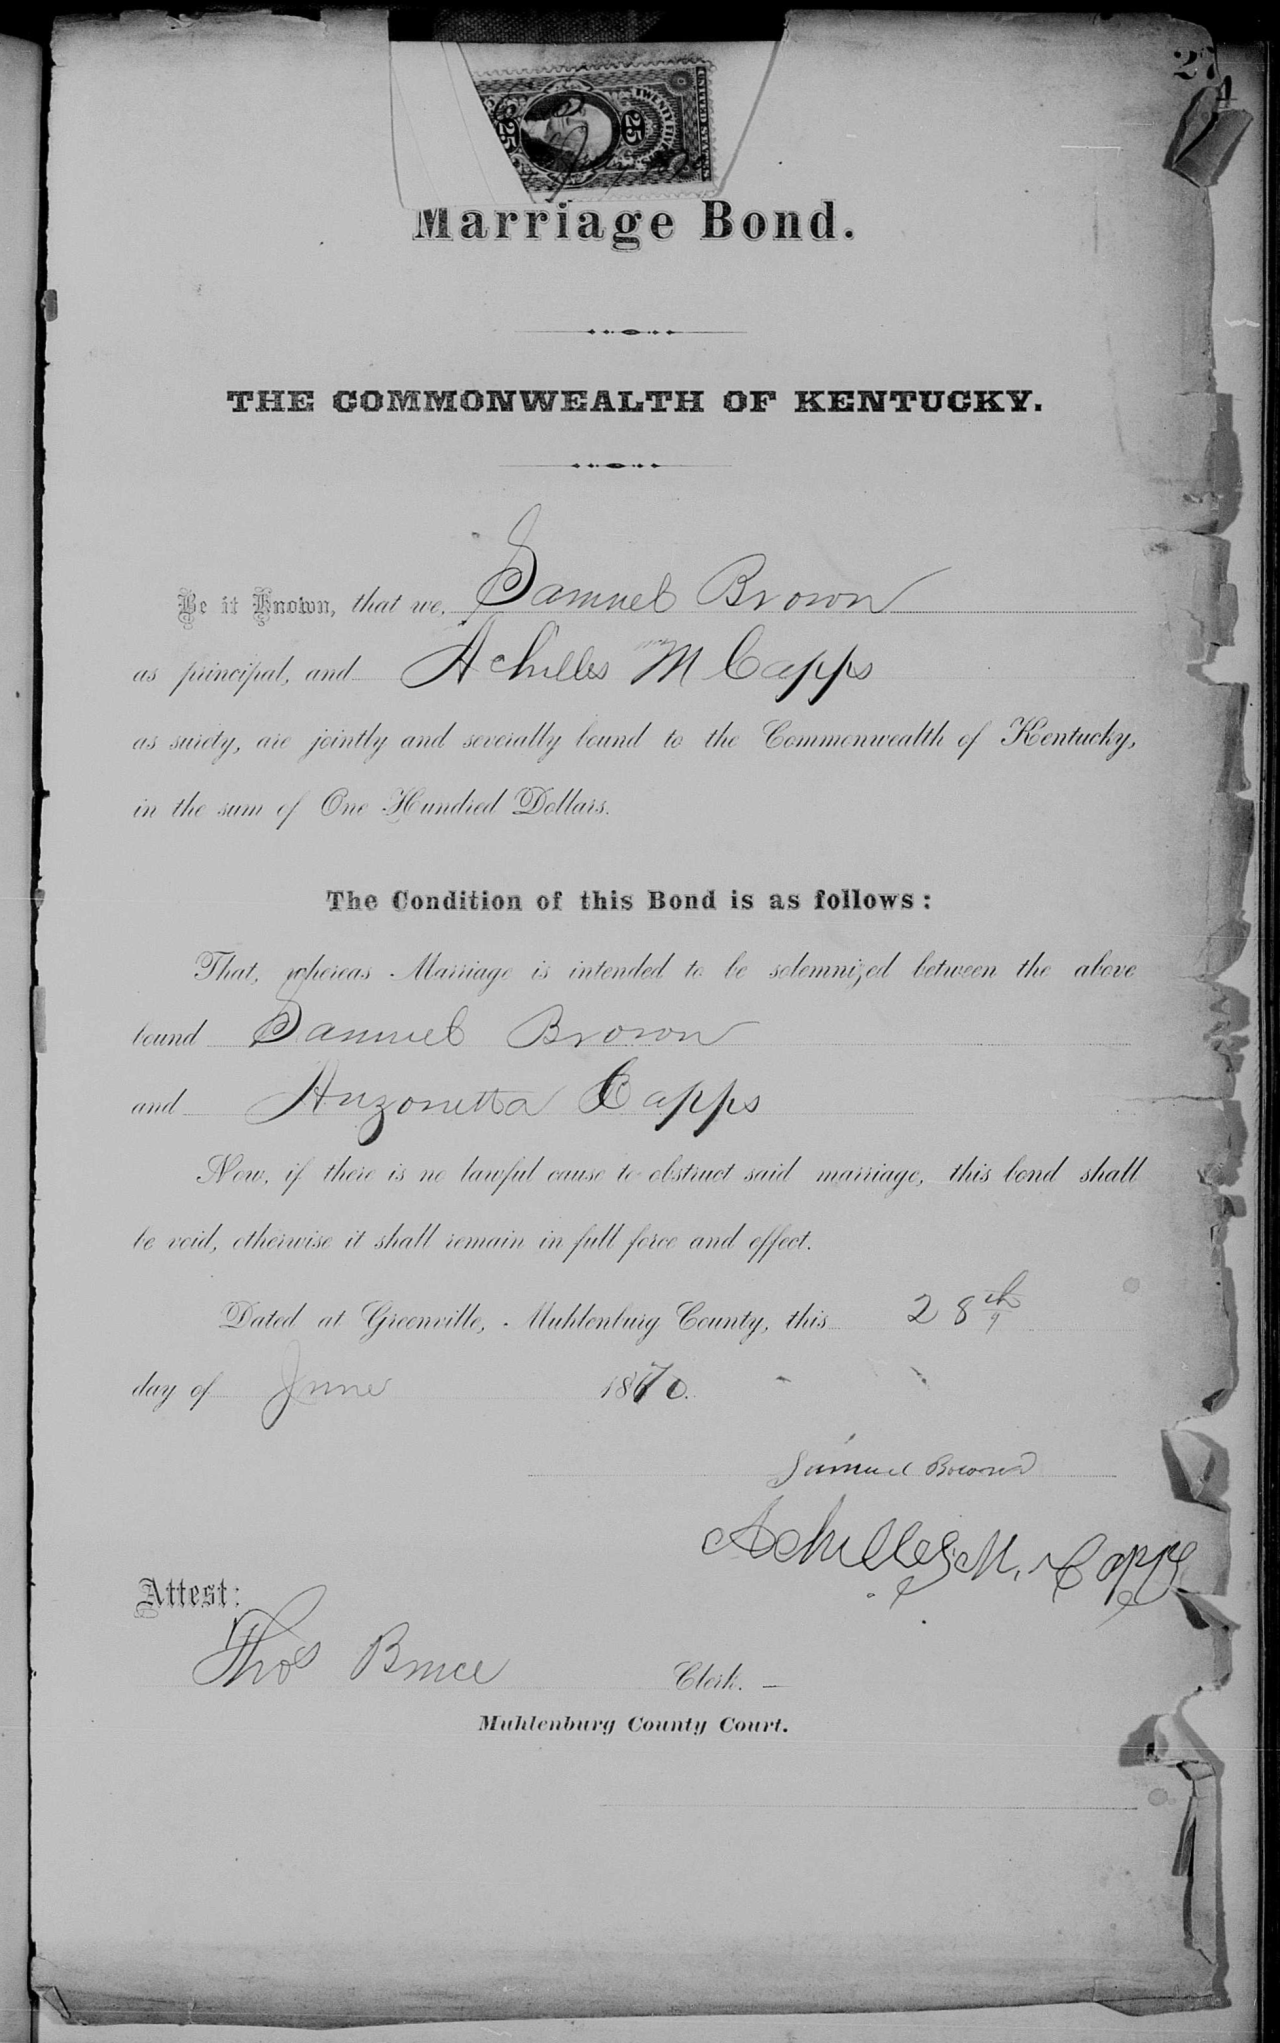 27
UNITED STA
TWENTY FIV
25 25
Marriage Bond.
THE COMMONWEALTH OF KENTUCKY.
Be it Known, that we, Samuel Brown
as principal, and Achilles M Capps
as surety, are jointly and severally bound to the Commonwealth of Kentucky,
in the sum of One Hundred Dollars.
The Condition of this Bond is as follows:
That, whereas Marriage is intended to be solemnized between the above
bound Samuel Brown
and Anzonetta Capps
Now, if there is no lawful cause to obstruct said marriage, this bond shall
be void, otherwise it shall remain in full force and effect.
Dated at Greenville, Muhlenburg County, this 28th
day of June 1870.
Samuel Brown
Achilles M. Capps
Attest:
Thos Bruce Clerk.
Muhlenburg County Court.